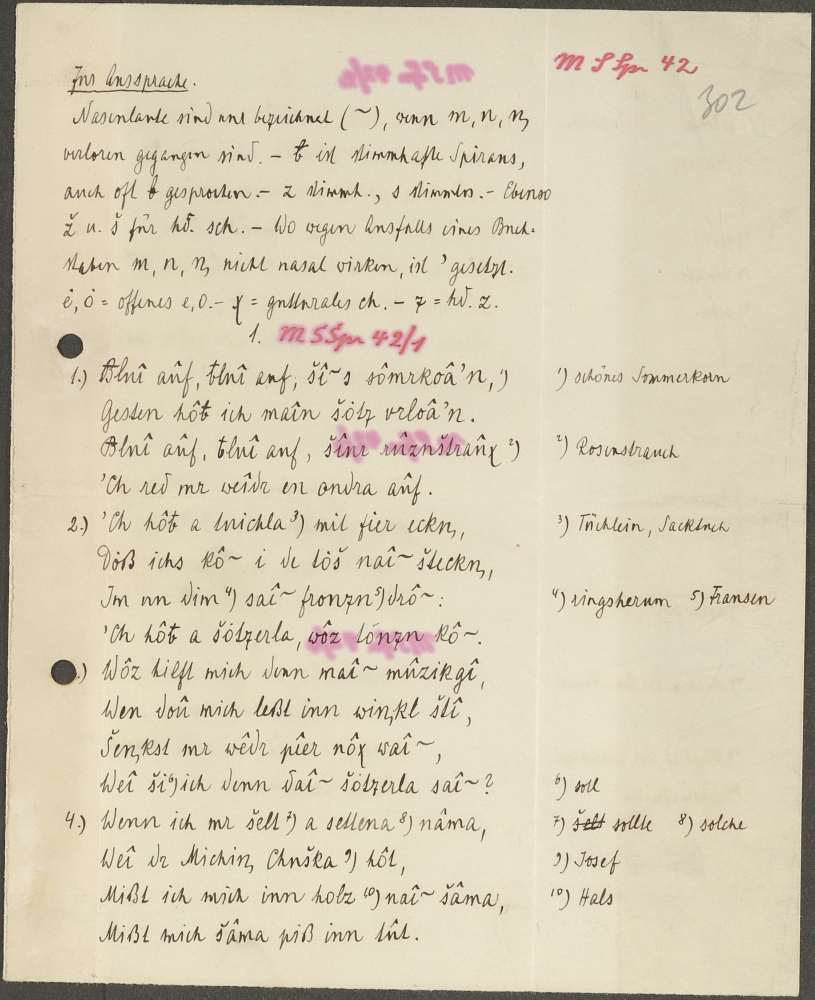 M S Spr 42
302
Zur Aussprache.
Nasenlaute sind nur bezeichnet (~), wenn m, n, ŋ
verloren gegangen sind. – ƀ ist stimmhafte Spirans,
auch oft b gesprochen. – z stimmh., s stimmlos. – Ebenso
ž u. š für hd. sch. – Wo wegen Ausfalls eines Buch-
staben m, n, ŋ nicht nasal wirken, ist ' gesetzt.
ė, ȯ = offenes e, o. – χ = gutturales ch. – ʒ = hd. z.
1. M S Spr 42/1
1.) Ƀluî aûf, ƀluî auf, šî~s sômrkoâ'n, ¹) ¹) schönes Sommerkorn
Gesten hôƀ ich maîn šötʒ vrloâ'n.
Ƀluî aûf, ƀluî auf, šînr rûznštraûχ ²) ²) Rosenstrauch
'Ch red mr weîdr en ondra aûf.
2.) 'Ch hôƀ a tuichla ³) mit fier eckŋ, ³) Tüchlein, Sacktuch
Döß ichs kô~ i de töš naî~ šteckŋ,
Im un dim ⁴) saî~ fronʒn ⁵) drô~: ⁴) ringsherum 5) Fransen
'Ch hôƀ a šötʒerla, wôz tónʒn kô~.
.) Wôz hilft mich denn maî~ mûzikgî,
Wen doû mich leßt inn wiŋkl štî,
Šeŋkst mr wêdr pîer nôχ waî~,
Weî ši ⁶) ich denn daî~ šötʒerla saî~? ⁶) soll
4.) Wenn ich mr šelt ⁷) a settena ⁸) nâma, ⁷) šelt sollte ⁸) solche
Weî dr Michiŋ Chuška ⁹) hôt, ⁹) Josef
Mißt ich mich inn holz ¹⁰) naî~ šâma, ¹⁰) Hals
Mißt mich šâma piß inn tût.